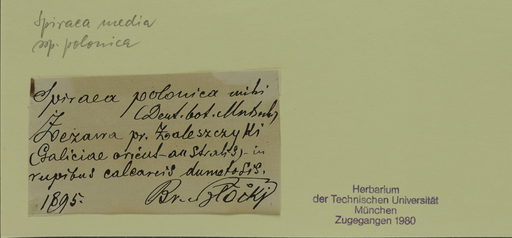 Spiraea media
ssp. polonica
Spiraea polonica mihi
(Deut. bot. Mntsch.)
Żeżawa pr. Zaleszczyki
(Galiciae orient-australis) in
rupibus calcareis dumetosis.
1895. Br. Błocki
Herbarium
der Technischen Universität
München
Zugegangen 1980